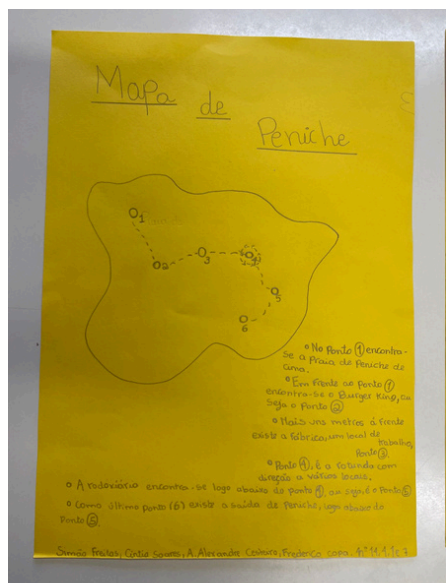 Mapa de
Peniche
1
2
3
4
5
6
No Ponto ① encontra-
se a Praia de Peniche de
Cima.
Em frente ao Ponto ①
encontra-se o Burger King, ou
seja o Ponto ②
Mais uns metros á frente
existe a fábrica, um local de
trabalho,
Ponto ③.
Ponto ④, é a rotunda com
direção a vários locais.
A rodoviária encontra-se logo abaixo do ponto ④, ou seja, é o Ponto ⑤
Como último ponto (6) existe a saída de Peniche, logo abaixo do
Ponto ⑤.
Simão Freitas, Cíntia Soares, A. Alexandre Cesteiro, Frederico copa. nº